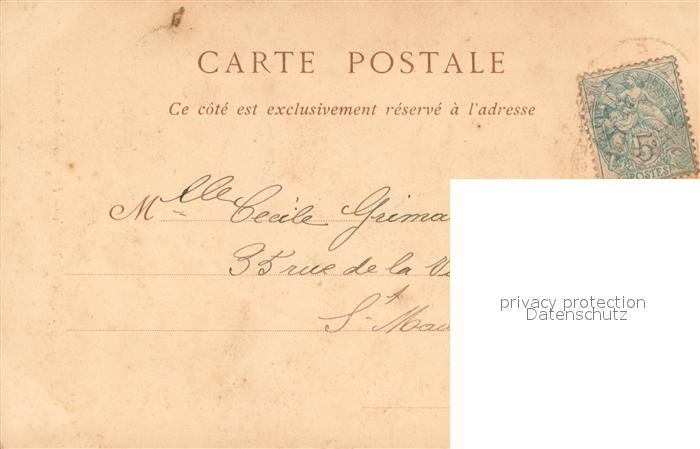 CARTE POSTALE
Ce côté est exclusivement réservé à l'adresse
5c
POSTES
Mlle Cecile Grima
35 rue de la
St Mau
privacy protection
Datenschutz